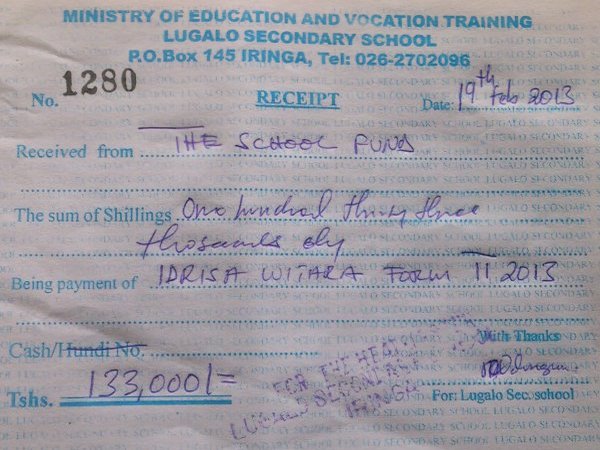 MINISTRY OF EDUCATION AND VOCATION TRAINING
LUGALO SECONDARY SCHOOL
P.O.Box 145 IRINGA, Tel: 026-2702096
No. 1280 RECEIPT Date: 19th Feb 2013
Received from THE SCHOOL FUND
The sum of Shillings One hundred thirty three
thosands
Being payment of IDRISA WITARA FORM II 2013
Cash/Hundi No. With Thanks
Tshs. 133,000/=
For: Lugalo Sec. school
FOR THE HEAD
LUGALO SECONDARY
IRINGA